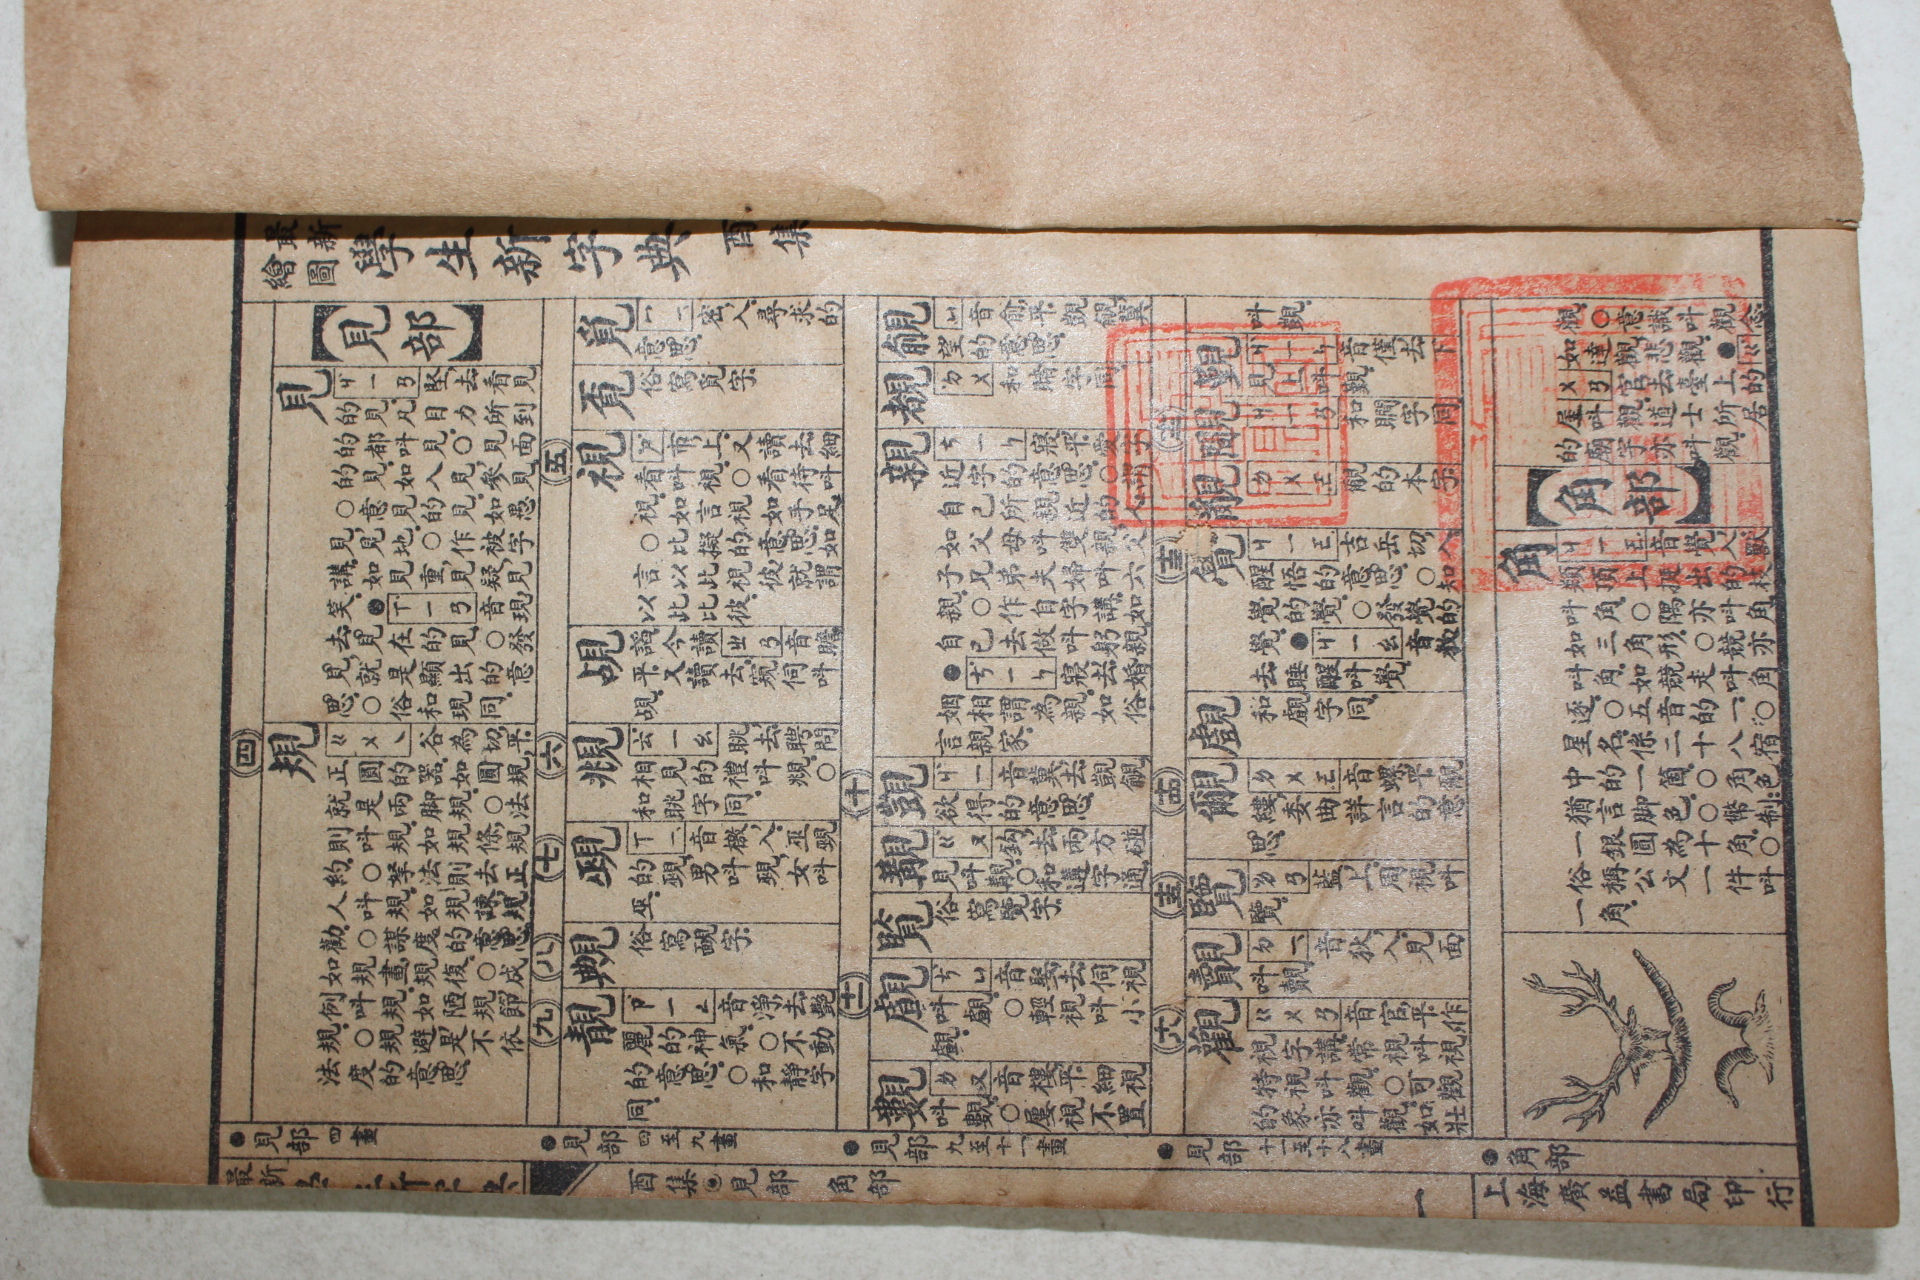 最新
繪圖
學生新字典
酉集
【見部】
見
ㄐㄧㄢ堅,去.看見
的見.凡目力所到
的都叫見.○見面
的見.如入見,參見.
○意見的見.如愚
見,見地.○作被字
講.如見重,見疑,見
笑.●ㄒㄧㄢ音現
去.見在的見.○發
見,就是顯出的意
思.○俗和現同.
四
規
ㄍㄨㄟ谷為切,平.
正圓的器.如圓規,
就是兩脚規.○法
則叫規.如規條,規
約.○拏法則去正
人叫規.如規諫,規
勸.○謀度的意思.
如規畫,規復.○成
例叫規.如陋規,節
規.○規避,是不依
法度的意思.
覓
ㄇㄧ密,入.尋求的
意思.
覔
俗寫覓字.
五
視
ㄕ市,上.又讀去.細
看叫視.○看待叫
視.如言視如手足.
○比擬的意思.如
言以此視彼,就謂
以此比彼.
覘
謟,今讀ㄓㄢ音瞻,
平.又讀去.窺伺叫
覘.
六
覜
ㄊㄧㄠ眺,去.聘問
相見的禮叫覜.○
和眺字同.
七
覡
ㄒㄧ音檄,入.巫覡
的覡,男叫覡,女叫
巫.
八
覥
俗寫靦字.
九
靚
ㄗㄧㄥ音淨,去.艷
麗的神氣.○不動
的意思.○和靜字
同.
覦
ㄩ音俞,平.覬覦,冀
望的意思.
覩
ㄉㄨ和睹字同.
親
ㄘㄧㄣ寢,平.愛字
近字的意思.○謂
自己所親近的人
如父母叫雙親,父
子兄弟夫婦叫六
親.○作自字講.如
自己去做叫躬親.
●ㄘㄧㄣ寢,去.婚
姻相謂為親.如俗
言親家.
十
覬
ㄐㄧ音冀,去.覬覦,
欲得的意思.
覯
ㄍㄡ鈎,去.兩方碰
見叫覯.○和遘字通.
覧
俗寫覽字.
十一
覰
ㄘㄩ音娶,去.伺視
叫覰.○輕視叫小
覰.
䙔
ㄌㄡ音樓,平.細視
叫䙔.○屢視不置
叫觀.
十二
覲
ㄐㄧㄣ音僅,去.下
見上叫覲.
覸
ㄐㄧㄢ和瞯字同
覶
ㄌㄨㄛ覼的本字.
十三
覺
ㄐㄧㄛ吉岳切,入.
醒悟的意思.○知
覺的覺.○發覺的
覺.●ㄐㄧㄠ音教
去.睡醒叫覺.
覷
和覰字同.
十四
覼
ㄌㄨㄛ音螺,平.覼
縷,委曲詳言的意
思.
十五
覽
ㄌㄢ藍,上.周視叫
覽.
覿
ㄉㄧ音狄,入.見面
叫覿
十八
觀
ㄍㄨㄢ音官,平.作
視字講.常視叫視,
特視叫觀.○可觀
的象亦叫觀.如壯
觀.○意識叫觀念
如達觀,悲觀.●ㄍ
ㄨㄢ官,去.臺上的
屋叫觀.道士所居
的廟宇亦叫觀.
【角部】
角
ㄐㄧㄛ音覺,入.獸
類頂上挺出的枝
叫角.○隅亦叫角.
如三角形.○競亦
叫角.如競走叫角
逐.○五音的一.○
星名.係二十八宿
中的一箇.○角色
猶言脚色.○幣制:
一銀圓為十角.○
俗稱公文一件叫
一角.
●見部四畫
●見部四至九畫
●見部九至十一畫
●見部十一至十八畫
●角部
最新
學生新字典
酉集●見部
角部
一
上海廣益書局印行